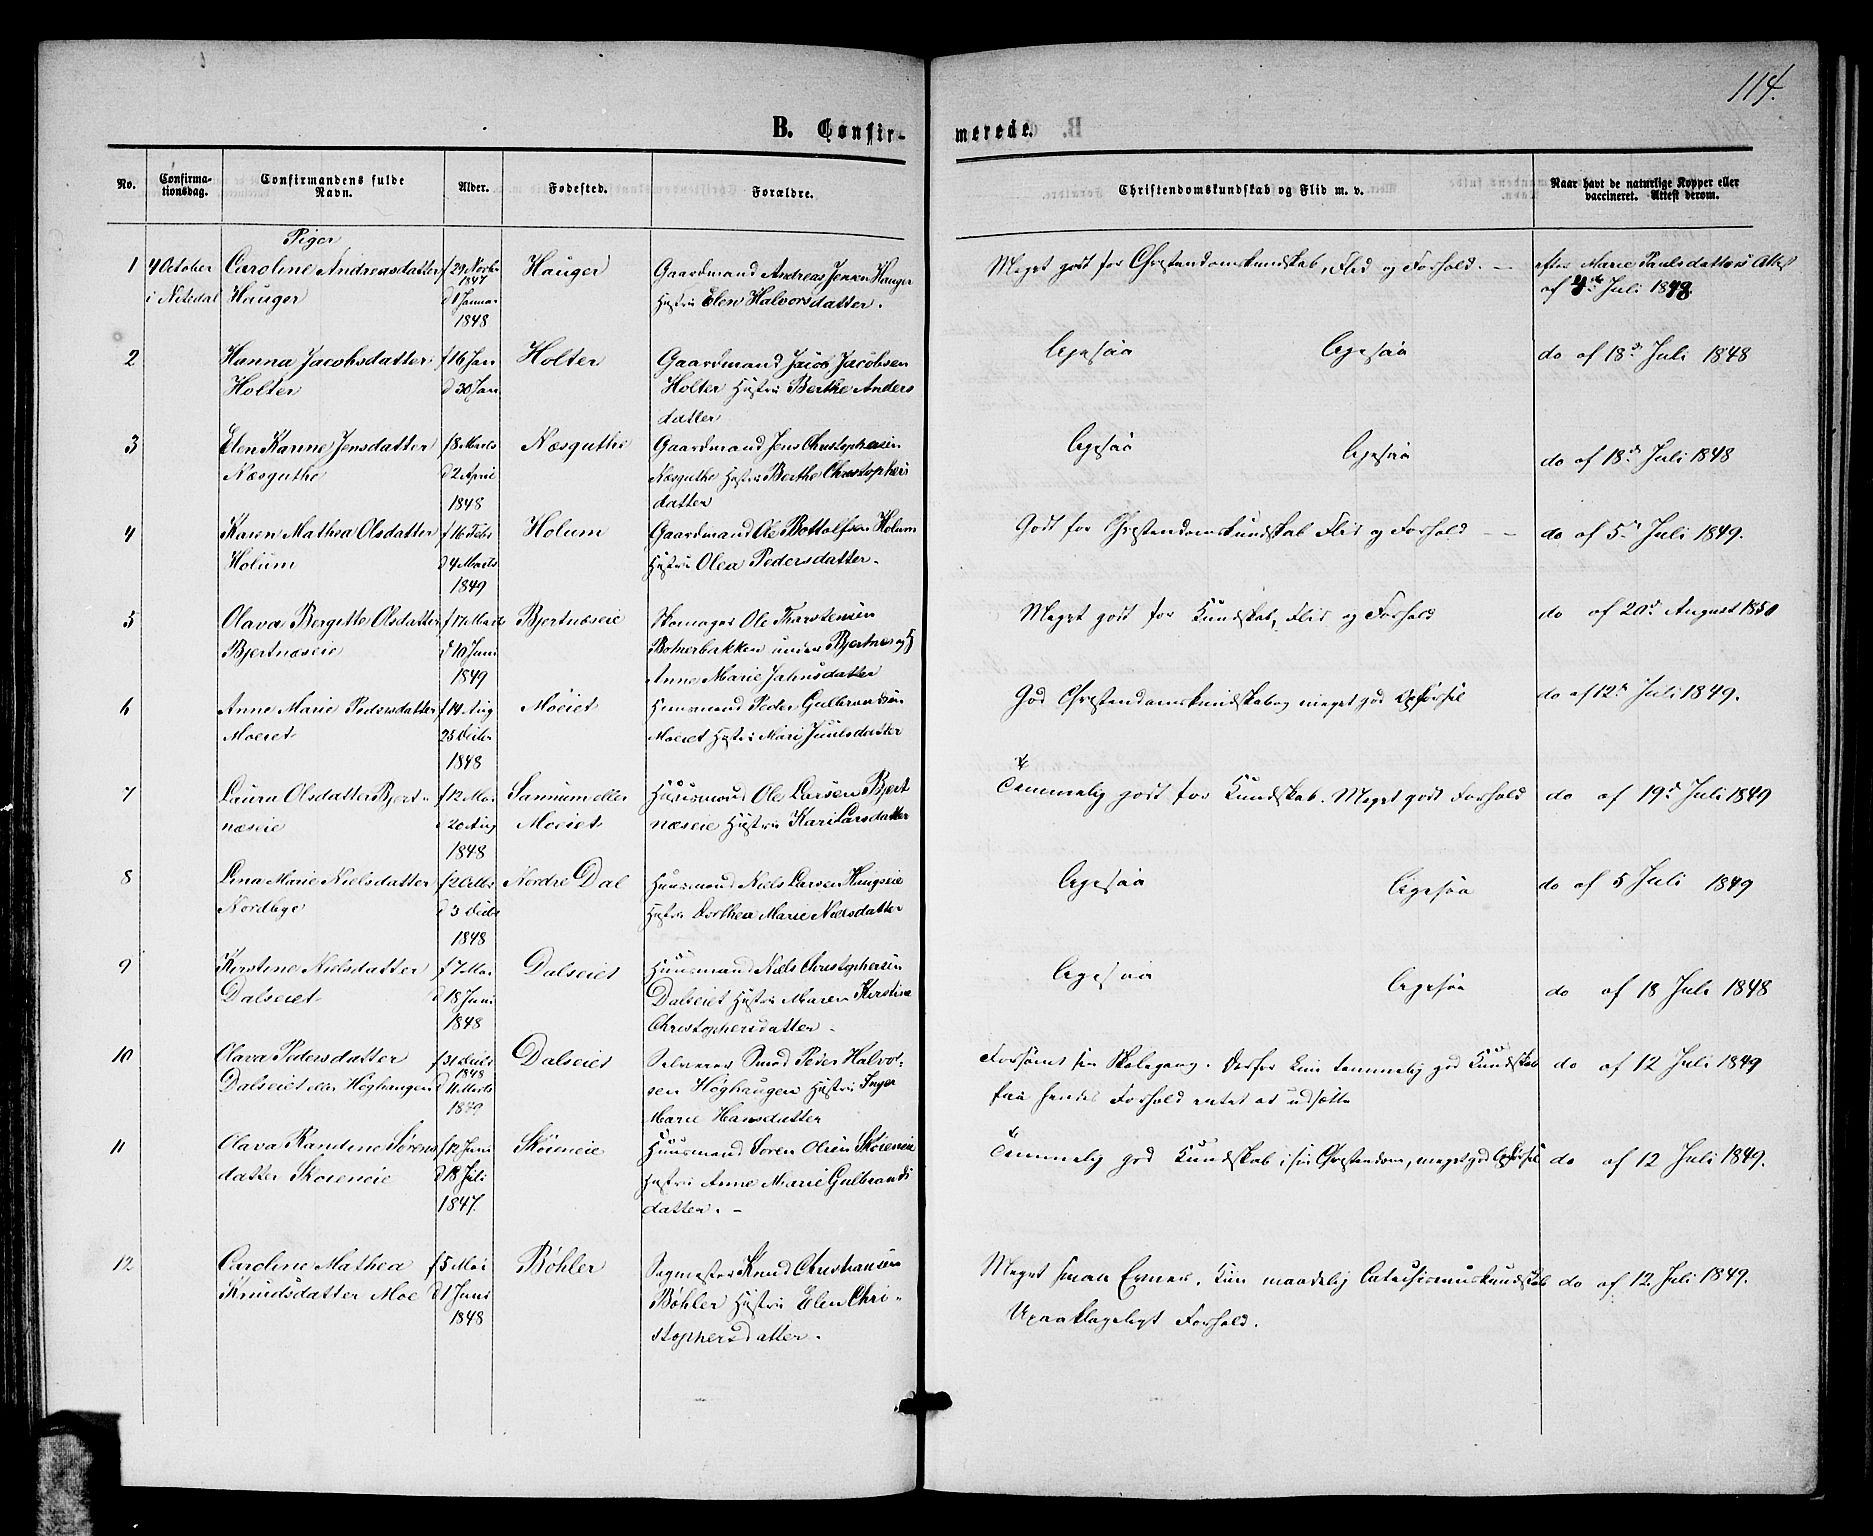 114.
B. Confir-
merede.
No.
Confirma-
tionsdag.
Confirmandens fulde
Navn.
Alder.
Fødested.
Forældre.
Christendomskundskab og Flid m. v.
Naar havt de naturlige Kopper eller
vaccineret. Attest derom.
Piger
1 4 October Caroline Andreasdatter f 29 Novbr Hauger Gaardmand Andreas Jensen Hauger Meget godt for Christendomskundskab, Flid og Forhold. — efter Marie Paulsdatters Attest
i Nitedal Hauger 1847 Hustru Elen Halvorsdatter. af 4de Juli 1848.
d 1 Januar
1848
2 Hanna Jacobsdatter f 16 Jan Holter Gaardmand Jacob Jacobsen Ligesaa Ligesaa do af 18de Juli 1848
Holter d 30 Jan Holter Hustru Berthe Anders
datter
3 Elen Karine Jensdatter f 8 Marts Næsguthe Gaardmand Jens Christophersen Ligesaa Ligesaa do af 18de Juli 1848
Næsguthe d 2 April Næsguthe Hustru Berthe Christophers
1848 datter
4 Karen Mathea Olsdatter f 16 Febr Holum Gaardmand Ole Bottolfsen Holum Godt for Christendomskundskab Flid og Forhold — — do af 5te Juli 1849.
Holum d 4 Marts Hustru Olea Pedersdatter.
1849
5 Olava Bergitte Olsdatter f 17 Marts Bjertnæseie Ole Thorstensen Meget godt for Kundskab, Flid og Forhold do af 20de August 1850
Bjertnæseie d 10 Juni under Bjertnæs og H
1849 Anne Marie Jahnsdatter
6 Anne Marie Pedersdatter f 14 Aug Moeiet Huusmand Peder Gulbrandsen God Christendomskundskab og meget god Opførsel do af 12te Juli 1849.
Moeiet 25 Moeiet Hustru Mari Juulsdatter
1848
7 Laura Olsdatter Bjert- f 12 Mai Sannum eller Huusmand Ole Larsen Bjert Temmelig godt for Kundskab. Meget godt Forhold do af 19de Juli 1849
næseie d 20 Aug Moeiet næseie Hustru Kari Larsdatter
1848
8 Lina Marie Nielsdatter f 2 Octbr Nordre Dal Huusmand Niels Larsen Haugseie Ligesaa Ligesaa do af 5 Juli 1849
Nordbye d 3 Decbr Hustru Dorthea Marie Nielsdatter
1848
9 Kirstine Nielsdatter f 7 Mai Dalseiet Huusmand Niels Christophersen Ligesaa Ligesaa do af 18 Juli 1848
Dalseiet d 18 Juni Dalseiet Hustru Maren Kirstine
1848 Christophersdatter —
10 Olava Pedersdatter f 31 Decbr Dalseiet Selveier Peder Halvor- Forsømt sin Skolegang. Derfor kun temmelig god Kundskab do af 12 Juli 1849
Dalseiet eller Høghaugen 1848 sen Høghaugen Hustru Inger paa hendes Forhold intet at udsætte
d 11 Marts Marie Hansdatter
1849
11 Olava Randine Sørens f 12 Juni Skøieneie Huusmand Søren Olsen Skøieneie Temmelig god Kundskab i sin Christendom, meget god Opførsel do af 12 Juli 1849.
datter Skøieneie d 18 Juli Hustru Anne Marie Gulbrands
1847. datter. —
12 Caroline Mathea f 5 Mai Bøhler Sagmester Knud Christiansen Meget smaa Evner. Kun maadelig Catechismuskundskab do af 12. Juli 1849.
Knudsdatter Moe d 1 Juni Bøhler Hustru Elen Chri- Upaaklageligt Forhold.
1848 stophersdatter.